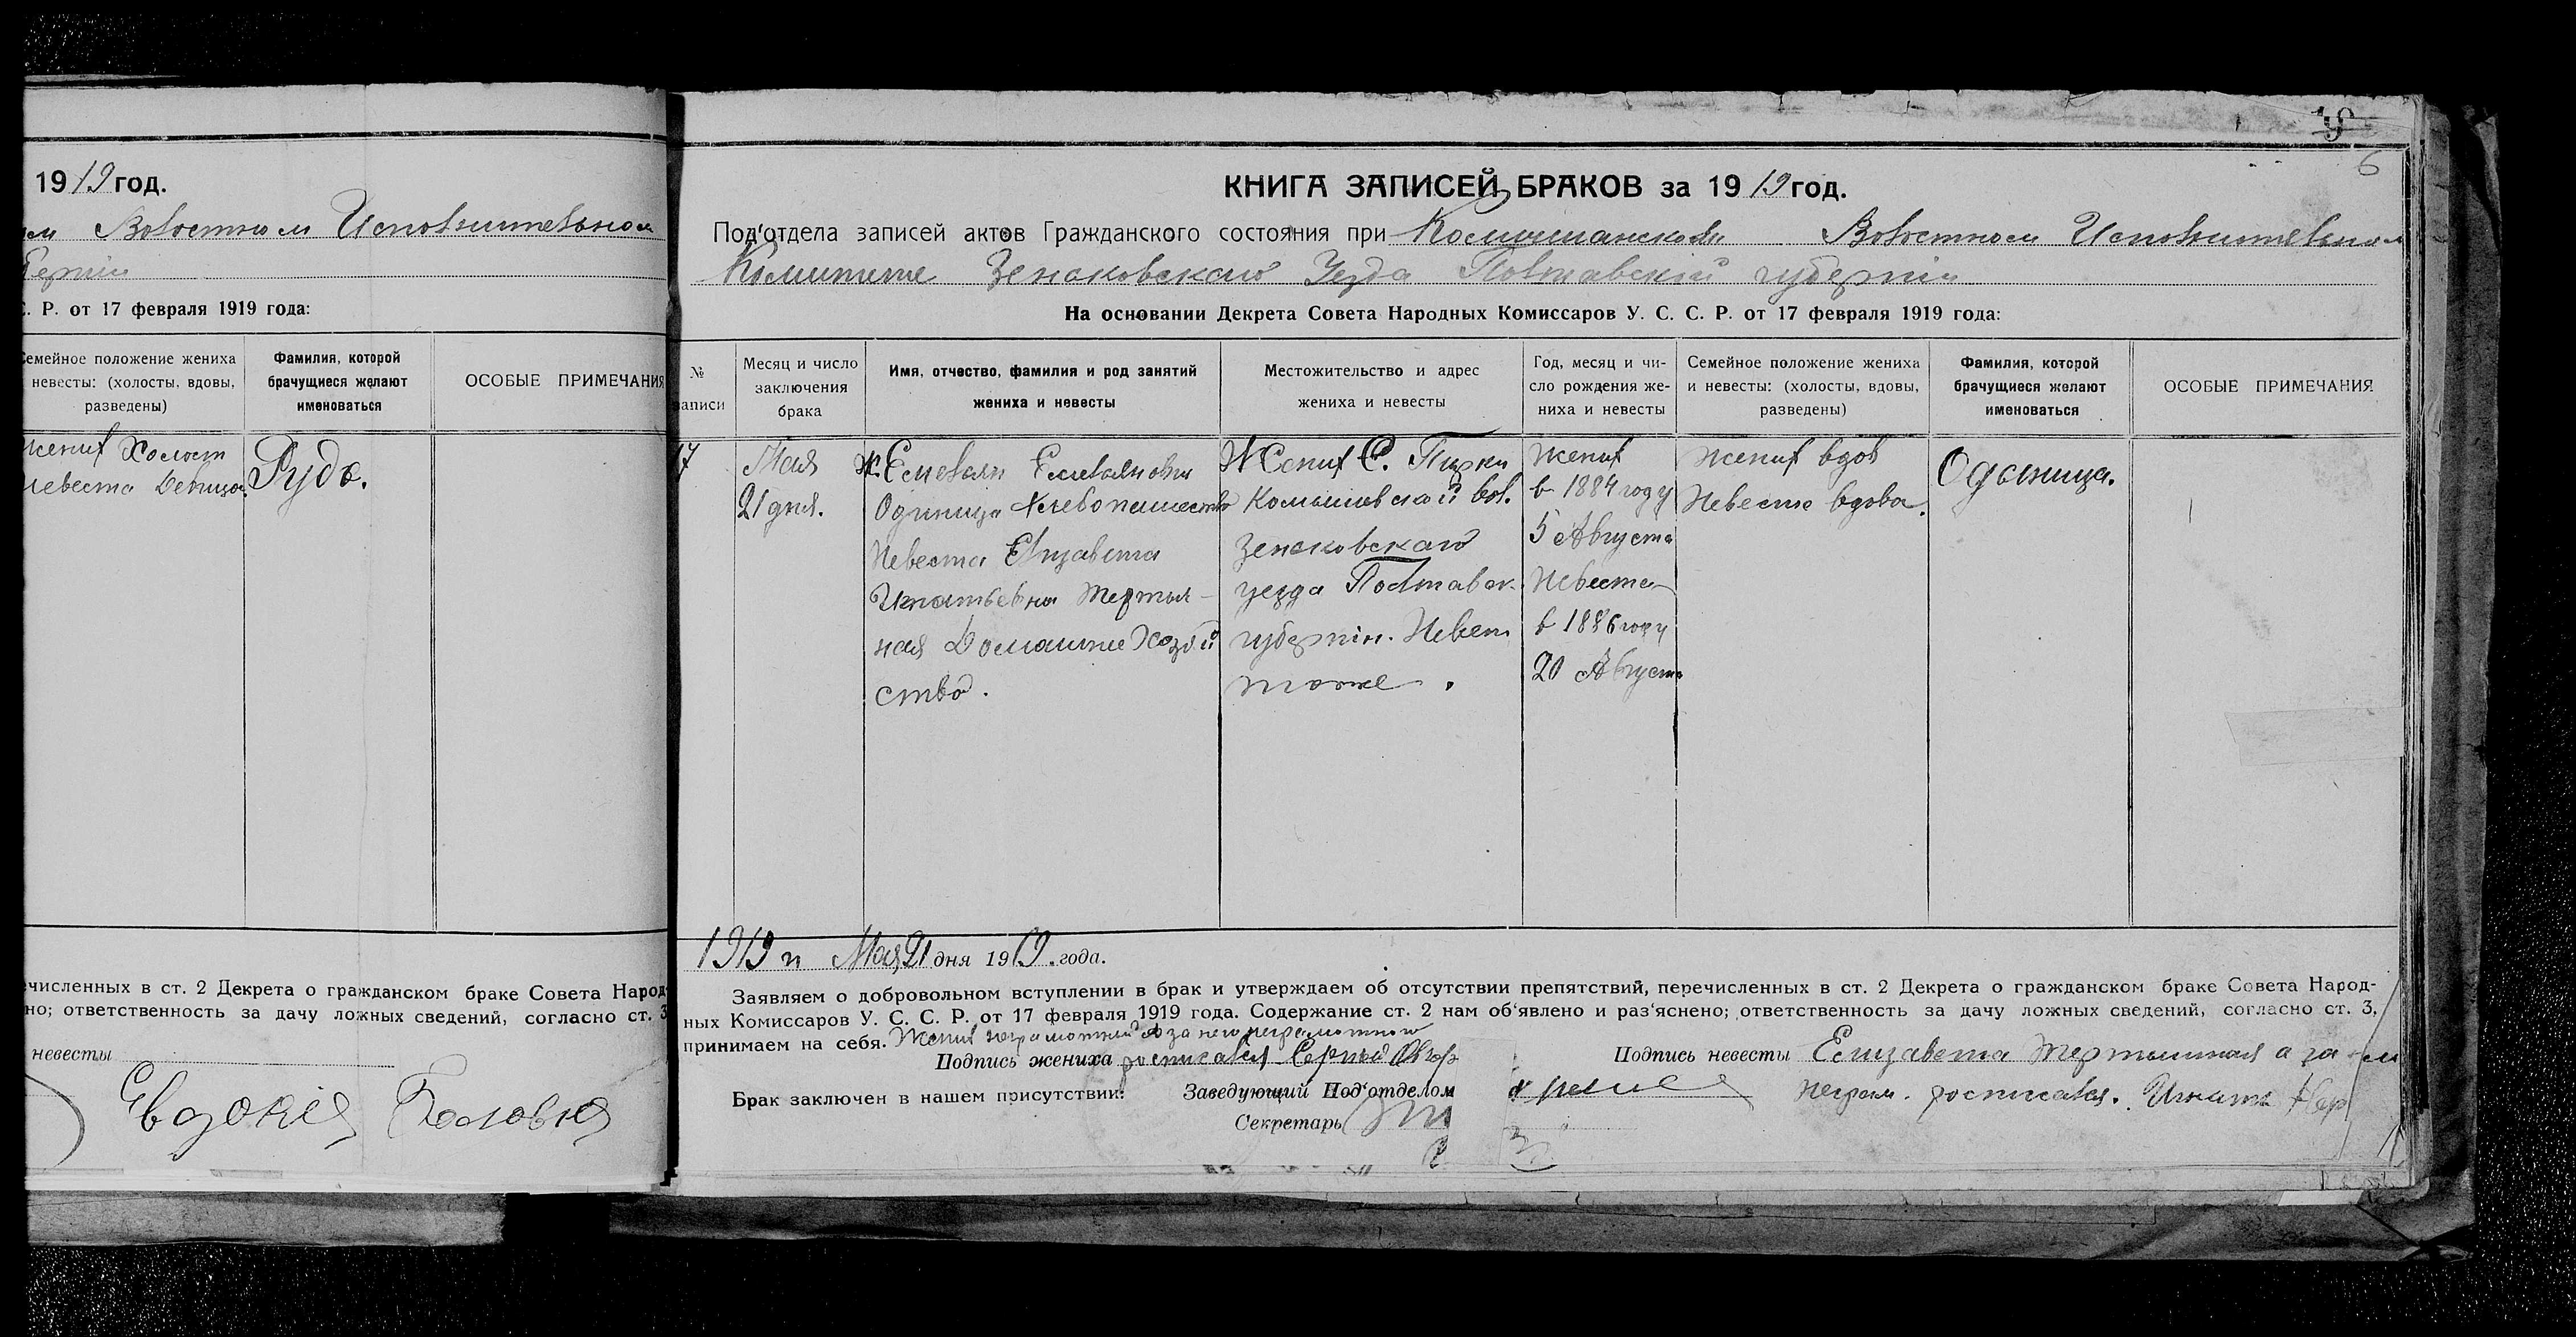 1919 год.
Волостном Исполнительном
С. Р. от 17 февраля 1919 года:
Семейное положение жениха
невесты: (холосты, вдовы,
разведены)
Фамилия, которой
брачущиеся желают
именоваться
ОСОБЫЕ ПРИМЕЧАНИЯ
жених Холост
невеста Девица
Рудь.
численных в ст. 2 Декрета о гражданском браке Совета Народ
но; ответственность за дачу ложных сведений, согласно ст. 3
невесты
Евдокія
19
6
КНИГА ЗАПИСЕЙ БРАКОВ за 1919 год.
Под'отдела записей актов Гражданского состояния при Комышанском Волостном Исполнительном
Комитете Зеньковскаго Уезда Полтавскій губерніи
На основании Декрета Совета Народных Комиссаров У. С. С. Р. от 17 февраля 1919 года:
№
записи
Месяц и число
заключения
брака
Имя, отчество, фамилия и род занятий
жениха и невесты
Местожительство и адрес
жениха и невесты
Год, месяц и чи-
сло рождения же-
ниха и невесты
Семейное положение жениха
и невесты: (холосты, вдовы,
разведены)
Фамилия, которой
брачущиеся желают
именоваться
ОСОБЫЕ ПРИМЕЧАНИЯ
17
Мая
21 дня.
Ж. Емельян Емельянович
Одиница Хлебопашество
Невеста Елизавета
Игнатьевна Тертыш-
ная Домашне Хозяй
ство.
Жених С. Пирки
Комышевской вол.
Зеньковскаго
уезда Полтавск.
губерніи. Невест
тоже.
жених
в 1884 году
5 Августа
Невеста
в 1886 году
20 Августа
жених вдов
Невеста вдова.
Одыница.
1919 г. Мая 21 дня 1919. года.
Заявляем о добровольном вступлении в брак и утверждаем об отсутствии препятствий, перечисленных в ст. 2 Декрета о гражданском браке Совета Народ-
ных Комиссаров У. С. С. Р. от 17 февраля 1919 года. Содержание ст. 2 нам об'явлено и раз'яснено; ответственность за дачу ложных сведений, согласно ст. 3,
принимаем на себя. Жених неграмотный а за него неграмотного
Подпись жениха росписался Сергий
Подпись невесты Елизавета Тертышная а за
Брак заключен в нашем присутствии: Заведующий Под'отделом
неграм. росписался. Игнат
Секретарь